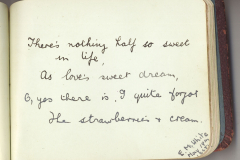 There's nothing half so sweet
in life,
As love's sweet dream,
O, yes there is, I quite forgot
The strawberries & cream.
E. M. White
May